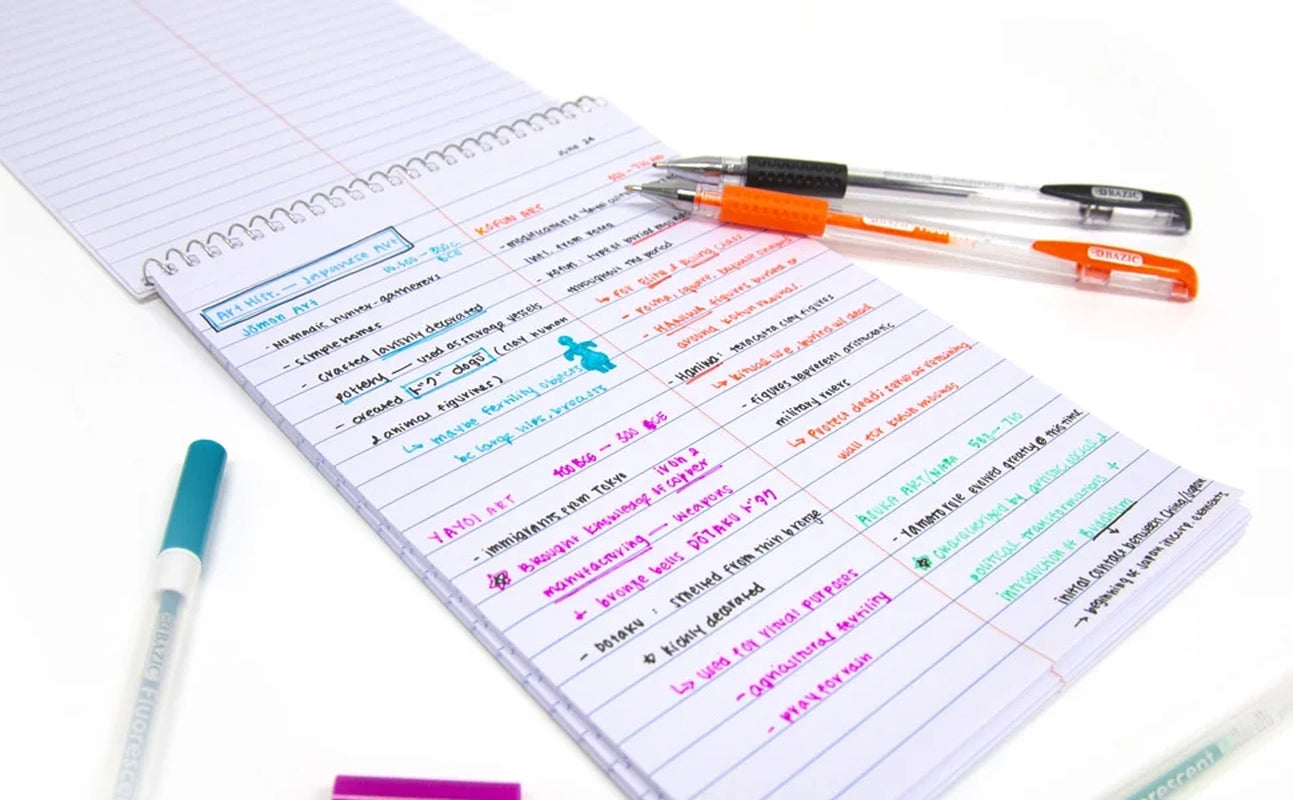 JUNE 24
Art Hist. — Japanese Art
Jōmon Art 10,500 – 300 BCE
- Nomadic hunter-gatherers
- simple homes
- crafted lavishly decorated
pottery — used as storage vessels
- created ドグ dogū (clay human
& animal figurines)
↳ maybe fertility objects
bc large hips, breasts
YAYOI ART 400 BCE — 300 CE
- immigrants from Tokyo
Brought knowledge of iron &
copper
manufacturing — weapons
& bronze bells DŌTAKU ドタク
- DOTAKU : smelted from thin bronze
richly decorated
↳ used for ritual purposes
- agricultural fertility
- pray for rain
KOFUN ART
- modification of Yayoi
(net. from Korea
- Kofun: type of burial
throughout the period
↳ for Elite & Ruling class
- round, square, keyhole shaped
- HANIWA figures buried or
around kofun mounds.
- Haniwa: teracotta clay figures
↳ Ritual use, buried w/ dead
- figures represent aristocratic
military rulers
↳ Protect dead; serve as retaining
wall for kofun mounds
ASUKA ART/NARA 538 – 710
- Yamato rule evolved greatly @ this time
characterized by artistic, social &
political transformations +
introduction of Buddhism
→ initial contact between China/Japan
→ beginning of Japan incorp. elements
BAZIC
BAZIC
BAZIC Fluorescen
rescent